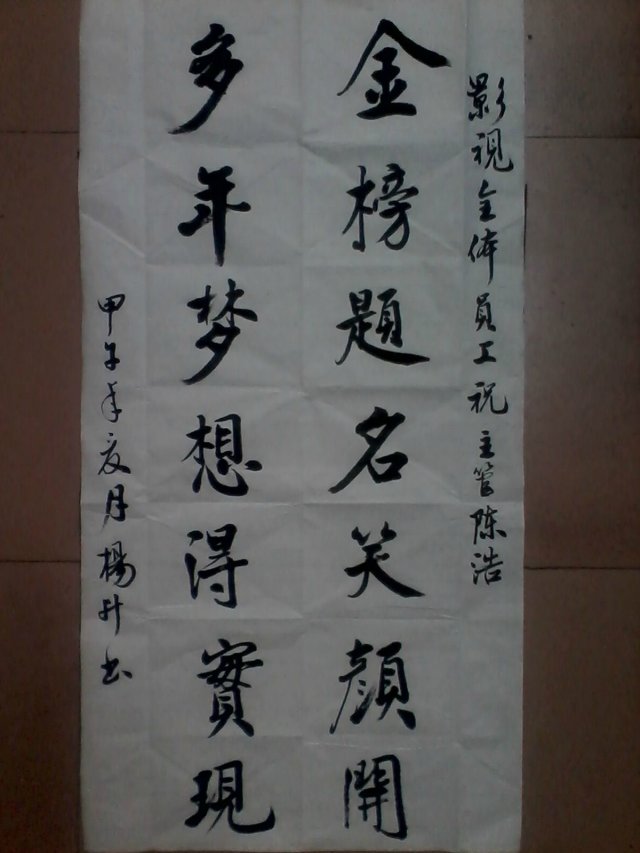 影視全体員工祝主管陈浩
金榜題名笑顔開
多年梦想得實現
甲子年亥月楊升书